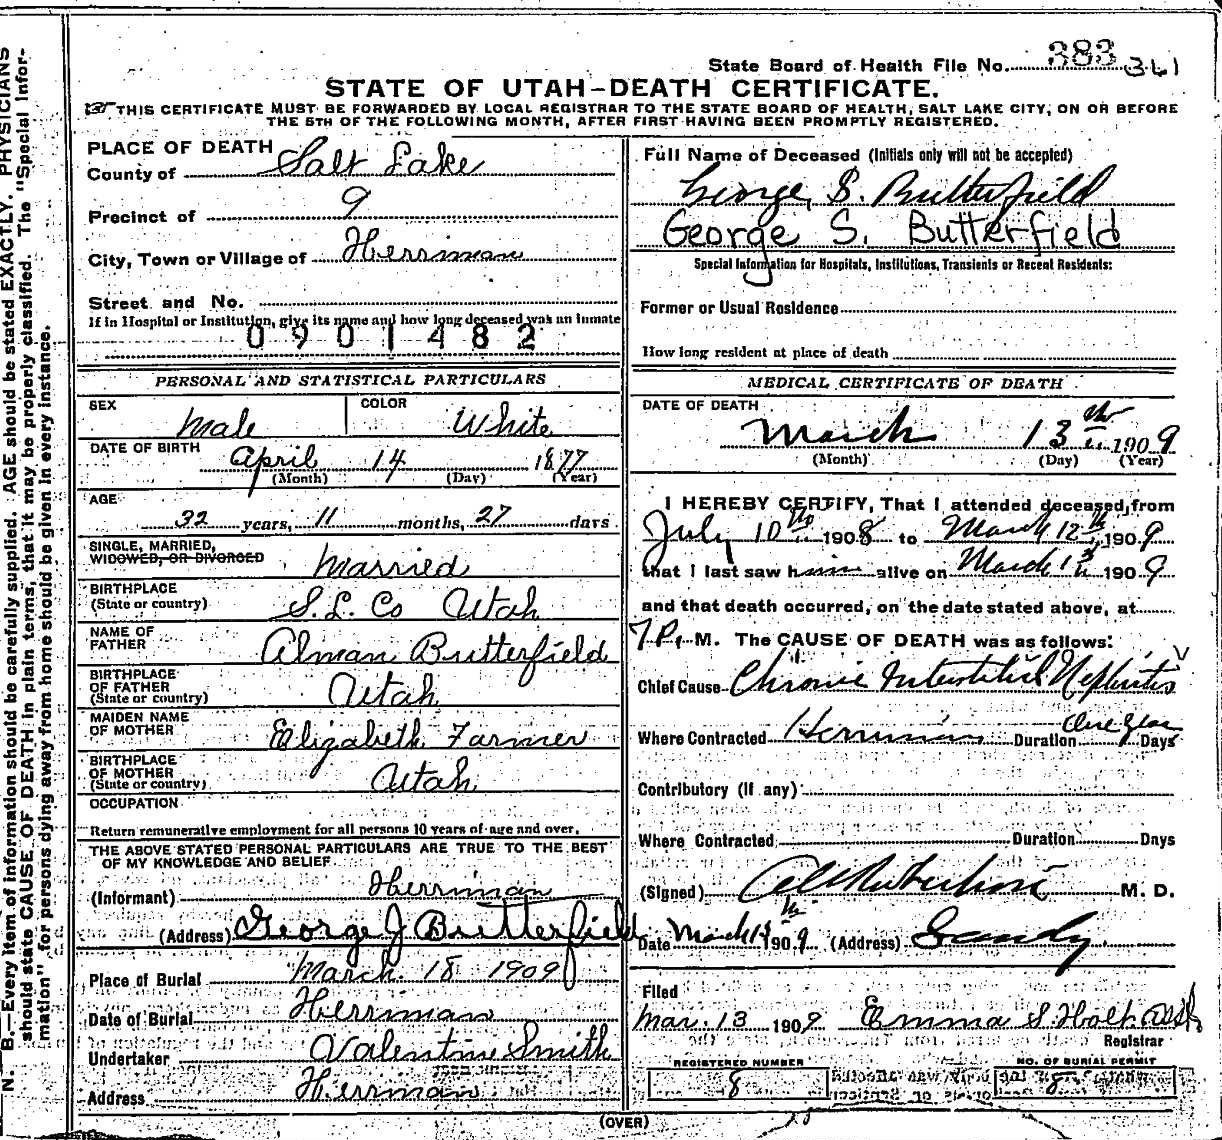 State Board of Health File No. 383 361
STATE OF UTAH-DEATH CERTIFICATE.
THIS CERTIFICATE MUST BE FORWARDED BY LOCAL REGISTRAR TO THE STATE BOARD OF HEALTH, SALT LAKE CITY, ON OR BEFORE
THE 5TH OF THE FOLLOWING MONTH, AFTER FIRST HAVING BEEN PROMPTLY REGISTERED.
PLACE OF DEATH
County of Salt Lake
Precinct of 9
City, Town or Village of Herriman
Street and No.
If in Hospital or Institution, give its name and how long deceased was an inmate
0901482
PERSONAL AND STATISTICAL PARTICULARS
SEX Male COLOR White
DATE OF BIRTH April 14 1877
(Month) (Day) (Year)
AGE
32 years, 11 months, 27 days
SINGLE, MARRIED,
WIDOWED, OR DIVORCED Married
BIRTHPLACE
(State or country) S. L. Co Utah
NAME OF
FATHER Alman Butterfield
BIRTHPLACE
OF FATHER
(State or country) Utah
MAIDEN NAME
OF MOTHER Elizabeth Farmer
BIRTHPLACE
OF MOTHER
(State or country) Utah
OCCUPATION
Return remunerative employment for all persons 10 years of age and over,
THE ABOVE STATED PERSONAL PARTICULARS ARE TRUE TO THE BEST
OF MY KNOWLEDGE AND BELIEF
(Informant) Herriman
(Address) George J Butterfield
Place of Burial March 18 1909
Date of Burial Herriman
Undertaker Valentine Smith
Address Herriman
Full Name of Deceased (Initials only will not be accepted)
George S. Butterfield
George S. Butterfield
Special Information for Hospitals, Institutions, Transients or Recent Residents:
Former or Usual Residence
How long resident at place of death
MEDICAL CERTIFICATE OF DEATH
DATE OF DEATH
March 13th 1909
(Month) (Day) (Year)
I HEREBY CERTIFY, That I attended deceased from
July 10th 1908 to March 12th 1909
that I last saw him alive on March 1909
and that death occurred, on the date stated above, at
7 P. M. The CAUSE OF DEATH was as follows:
Chief Cause Chronic Interstitial Nephritis
Where Contracted Herriman Duration One Year Days
Contributory (if any)
Where Contracted Duration Days
(Signed) M. D.
Date March 1909 (Address) Sandy
Filed
Mar. 13 1909 Emma S. Holt Asst
Registrar
REGISTERED NUMBER NO. OF BURIAL PERMIT
8 8
(OVER)
N. B.—Every item of information should be carefully supplied. AGE should be stated EXACTLY. PHYSICIANS
should state CAUSE OF DEATH in plain terms, that it may be properly classified. The "Special Infor-
mation" for persons dying away from home should be given in every instance.